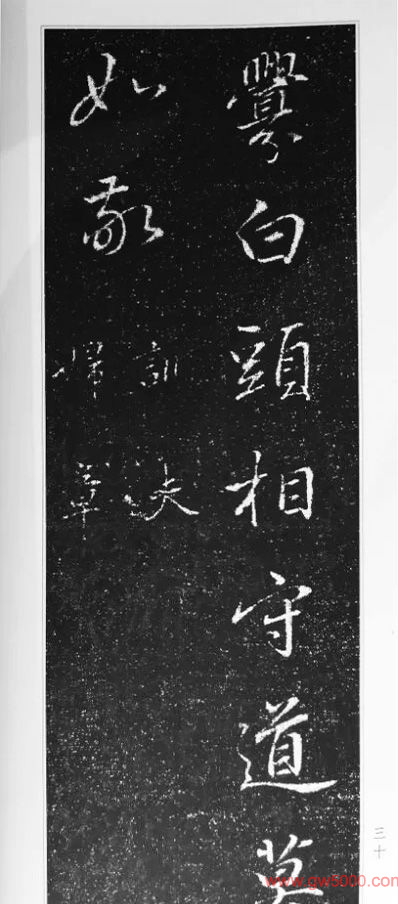 釁白頭相守道莫
如敬
訓夫
婦章
三十
www.gw5000.com